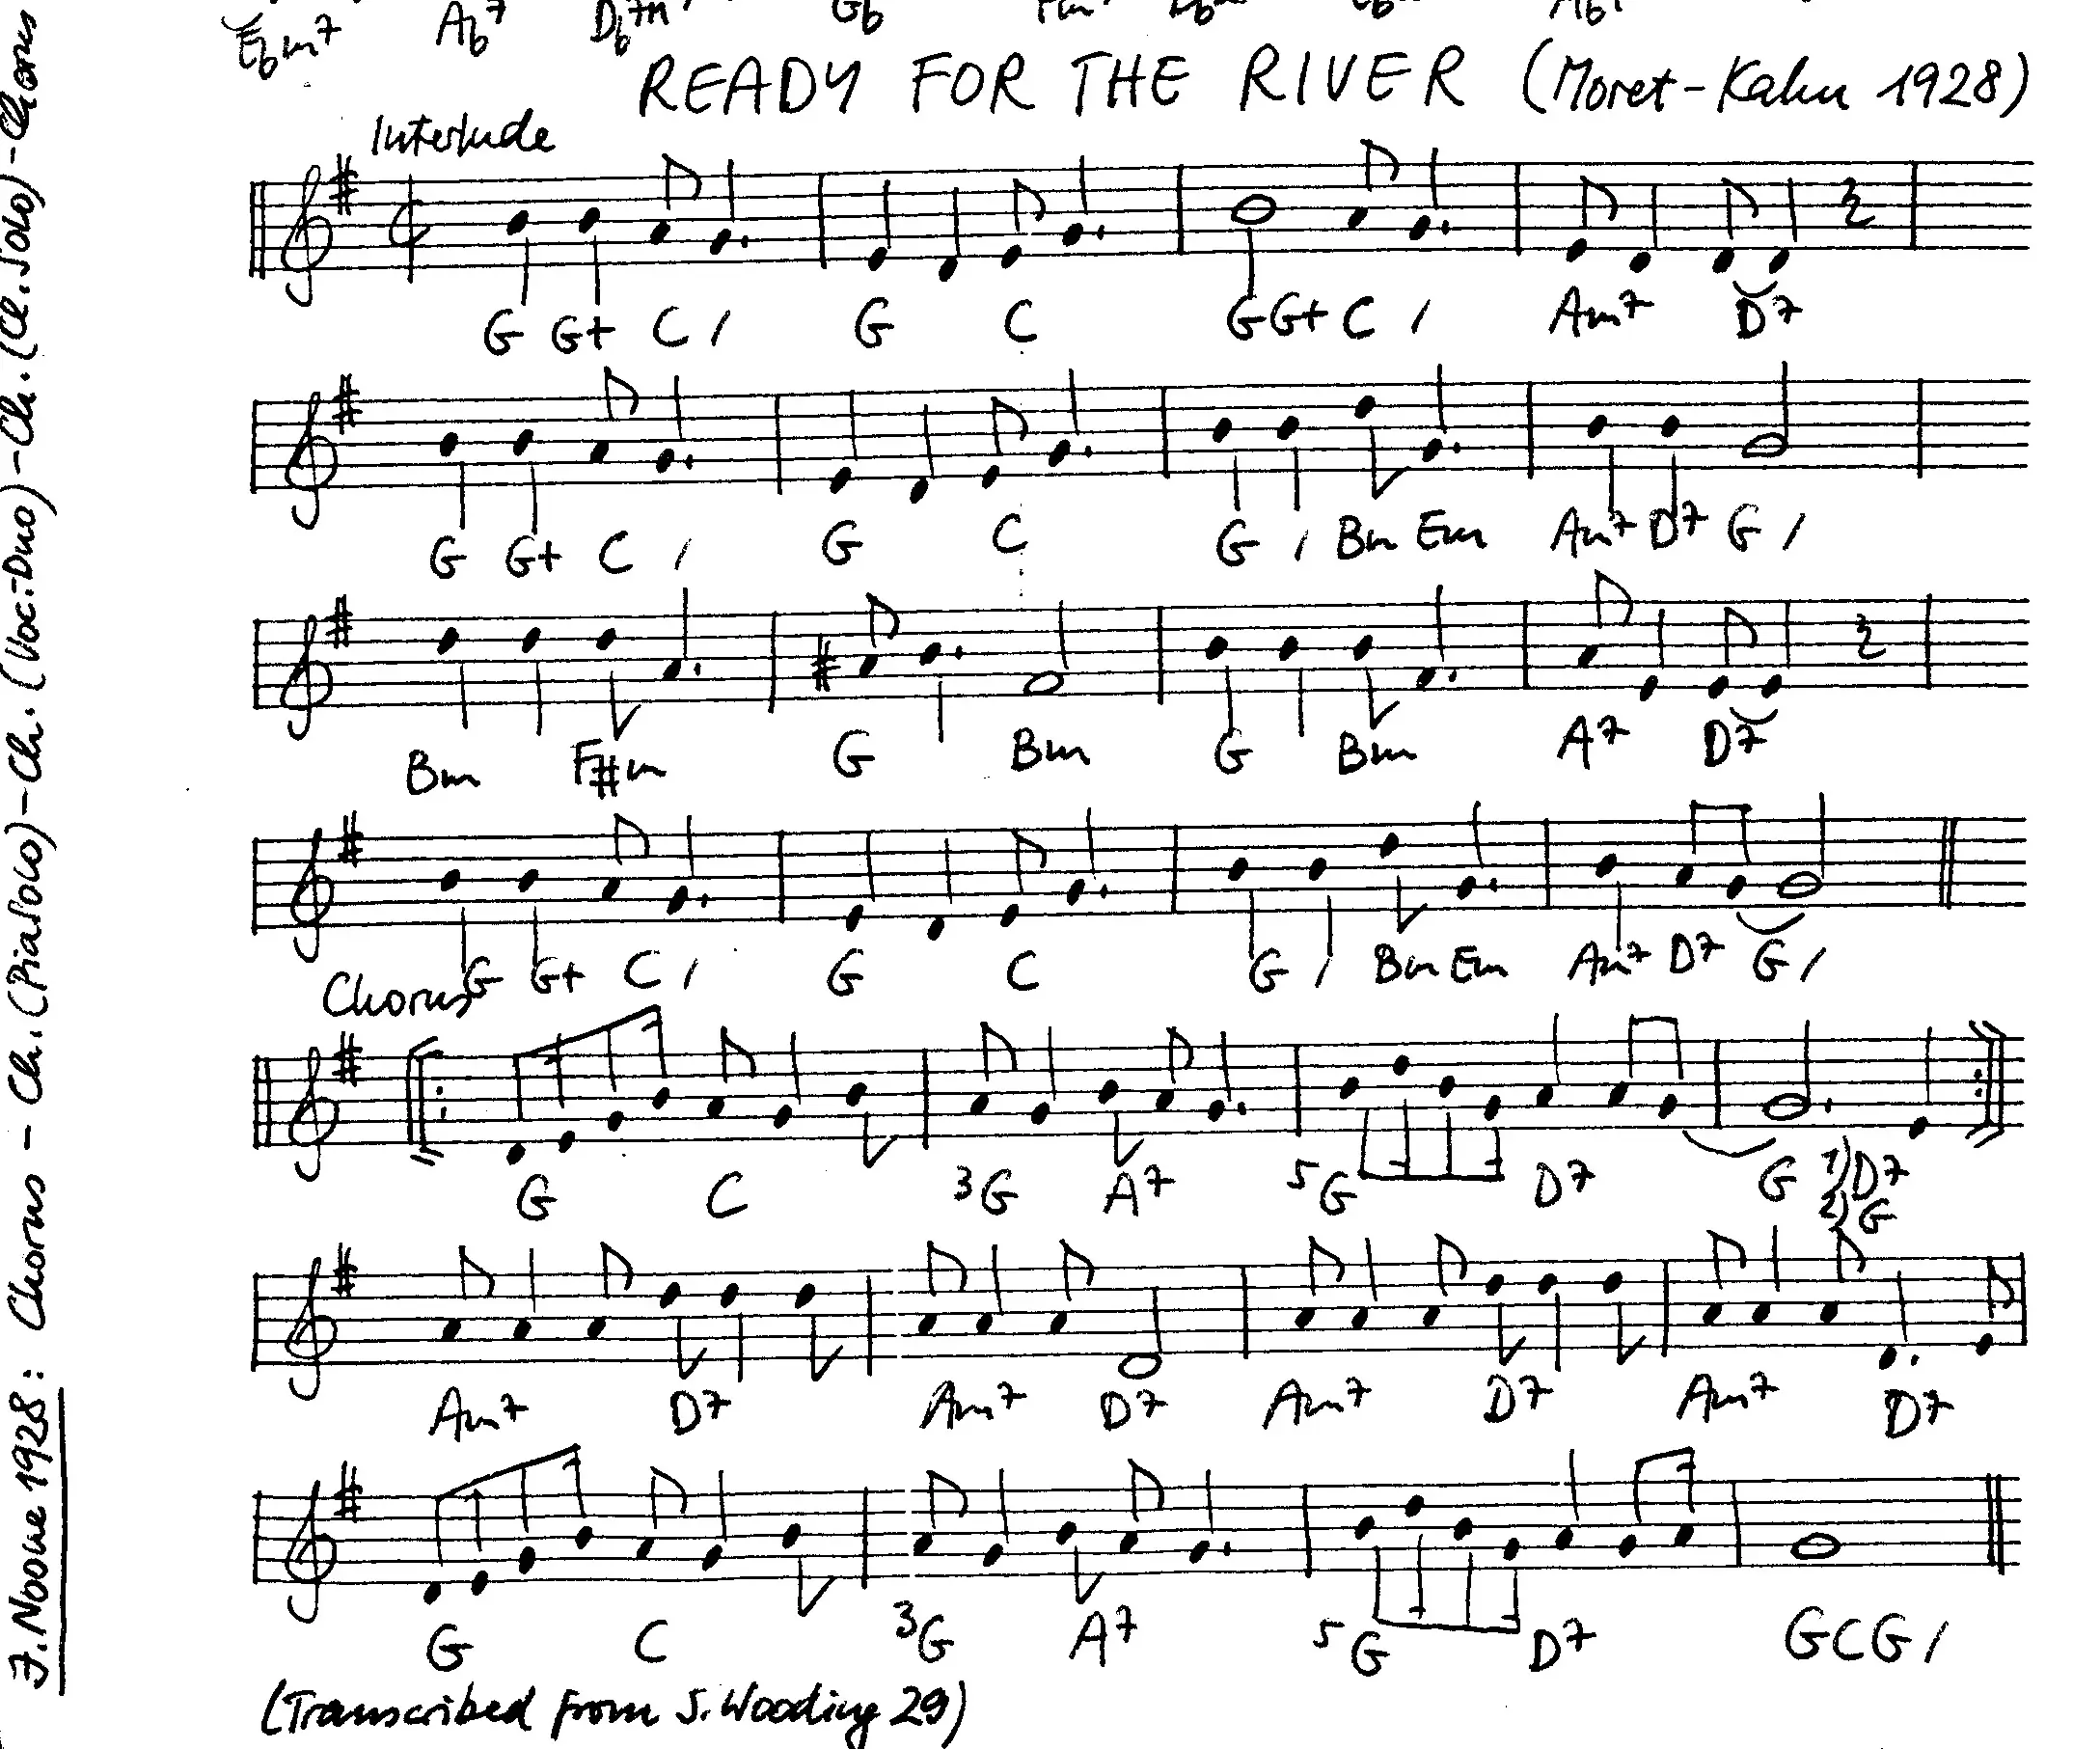 Ebm7 Ab7 Gb
READY FOR THE RIVER (Moret-Kahn 1928)
Interlude
G G+ C / G C G G+ C / Am7 D7
G G+ C / G C G / Bm Em Am7 D7 G /
Bm F#m G Bm G Bm A7 D7
G G+ C / G C G / Bm Em Am7 D7 G /
Chorus
G C 3G A7 5G D7 G 1) D7
2) G
Am7 D7 Am7 D7 Am7 D7 Am7 D7
G C 3G A7 5G D7 G C G /
(Transcribed from S. Wooding 29)
J. Noone 1928: Chorus - Ch. (Pia Solo) - Ch. (Voc. Duo) - Ch. (Cl. Solo) - Chorus